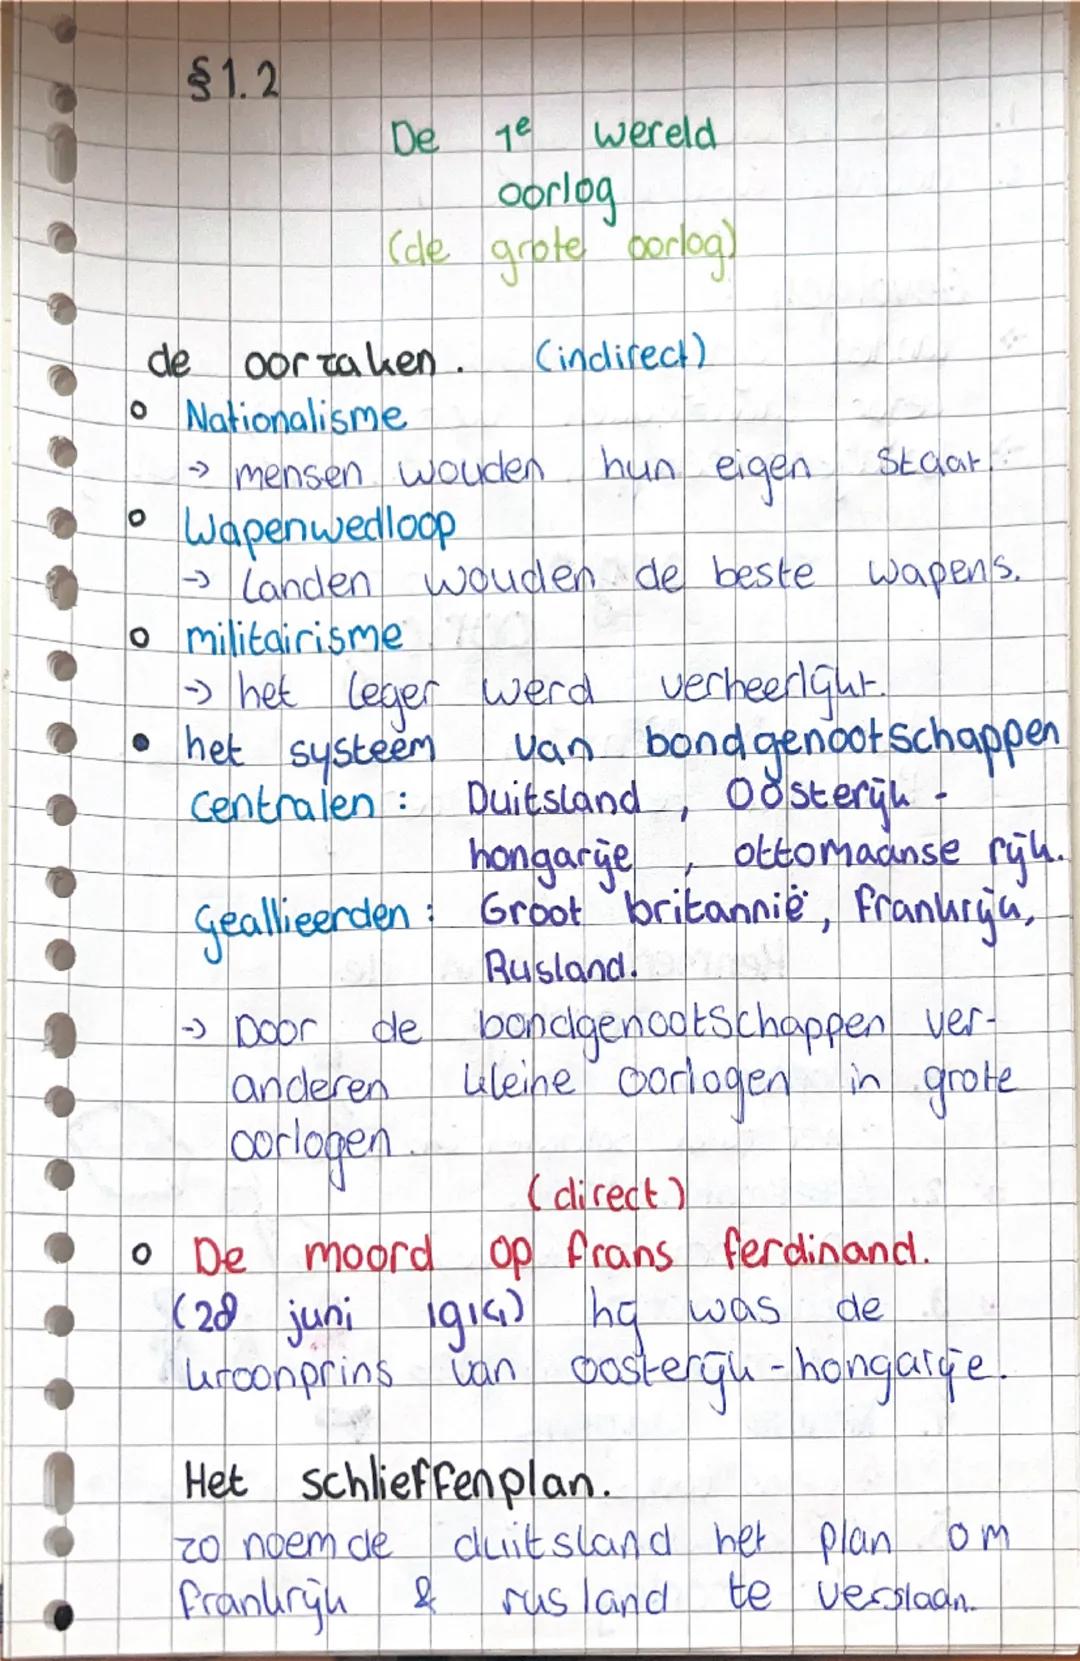 §1.2
De 1e wereld
oorlog
(de grote oorlog)
de oorzaken. (indirect)
Nationalisme
→ mensen wouden hun eigen staat.
Wapenwedloop
→ Landen wouden de beste wapens.
militairisme
→ het leger werd verheerlijkt.
het systeem van bondgenootschappen
centralen: Duitsland, Oosterijk-
hongarije, ottomaanse rijk.
Geallieerden: Groot britannië, frankrijk,
Rusland.
→ Door de bondgenootschappen ver-
anderen kleine oorlogen in grote
oorlogen.
(direct)
De moord op frans ferdinand.
(28 juni 1914) hij was de
kroonprins van oosterijk-hongarije.
Het schlieffenplan.
zo noemde duitsland het plan om
frankrijk & rusland te verslaan.